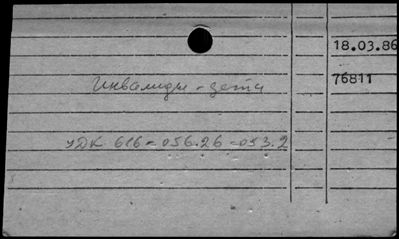 18.03.86
76811
Инвалиды - дети
УДК 616-056.26-053.2